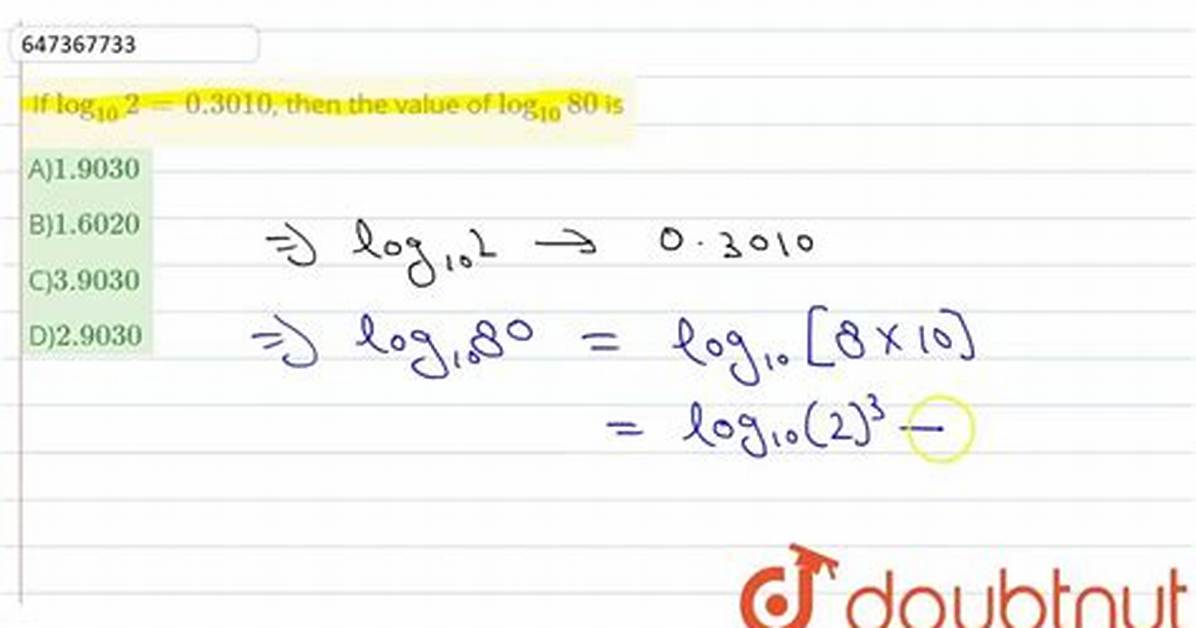 647367733
If log₁₀ 2 = 0.3010, then the value of log₁₀ 80 is
A)1.9030
B)1.6020
C)3.9030
D)2.9030
⇒ log₁₀2 → 0.3010
⇒ log₁₀80 = log₁₀ [8×10]
= log₁₀(2)³ –
doubtnut